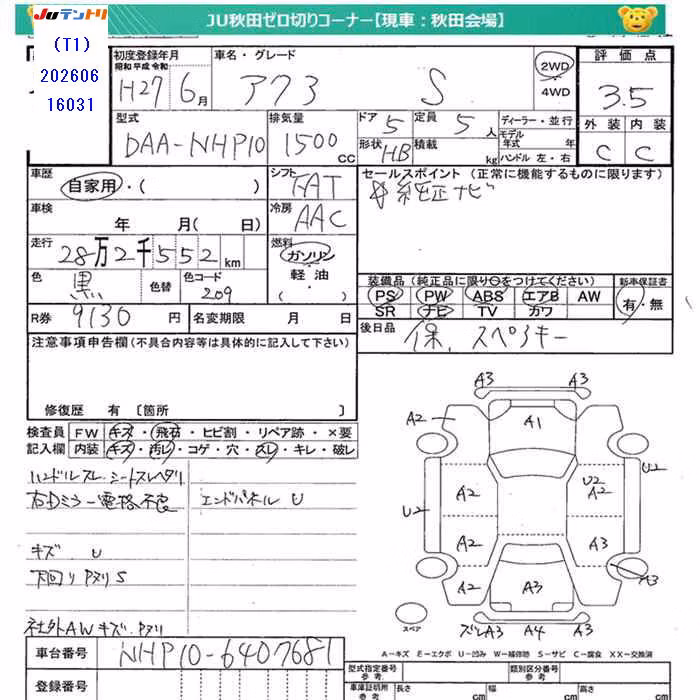 JUテントリ JU秋田ゼロ切りコーナー【現車：秋田会場】
(T1)
202606
16031
初度登録年月 車名・グレード 評価点
昭和 平成 令和
H27 6月 アクア S 2WD 4WD 3.5
型式 排気量 ドア 5 定員 5人 ディーラー・並行 外装 内装
DAA-NHP10 1500cc 形状 HB 積載 kg モデル年式 年式 ハンドル 左・右 C C
車歴 シフト セールスポイント（正常に機能するものに限ります）
自家用・( ) FAT 純正ナビ
車検 年 月(日) 冷房 AAC
走行 28万2千552km 燃料 ガソリン
軽油
・( )
色 黒 色替 色コード 209
装備品（純正品に限り○をつけてください） 新車保証書
PS PW ABS エアB AW 有・無
SR ナビ TV カワ
R券 9130円 名変期限 月 日 後日品 保、スペアキー
注意事項申告欄（不具合内容等は具体的に記入して下さい）
修復歴 有 [箇所 ]
検査員 FW キズ・飛石・ヒビ割・リペア跡・×要
記入欄 内装 キズ・汚レ・コゲ・穴・スレ・キレ・破レ
ハンドルスレ シートスレヘタリ
右Dミラー電格不良 エンドパネル U
キズ U
下回りPヌリ S
社外AWキズ、Pヌリ
A3 A3
A2 A1 A3
U2
A2 U2 A2
U2
A2 A3
A3
A2 A3
スペア ズレA3 A4 A3
A－キズ E－エクボ U－凹み W－補修跡 S－サビ C－腐食 XX－交換済
車台番号 NHP10-6407681
登録番号
型式指定番号 参考 類別区分番号 参考
車庫証明用 参考 長さ cm 幅 cm 高さ cm